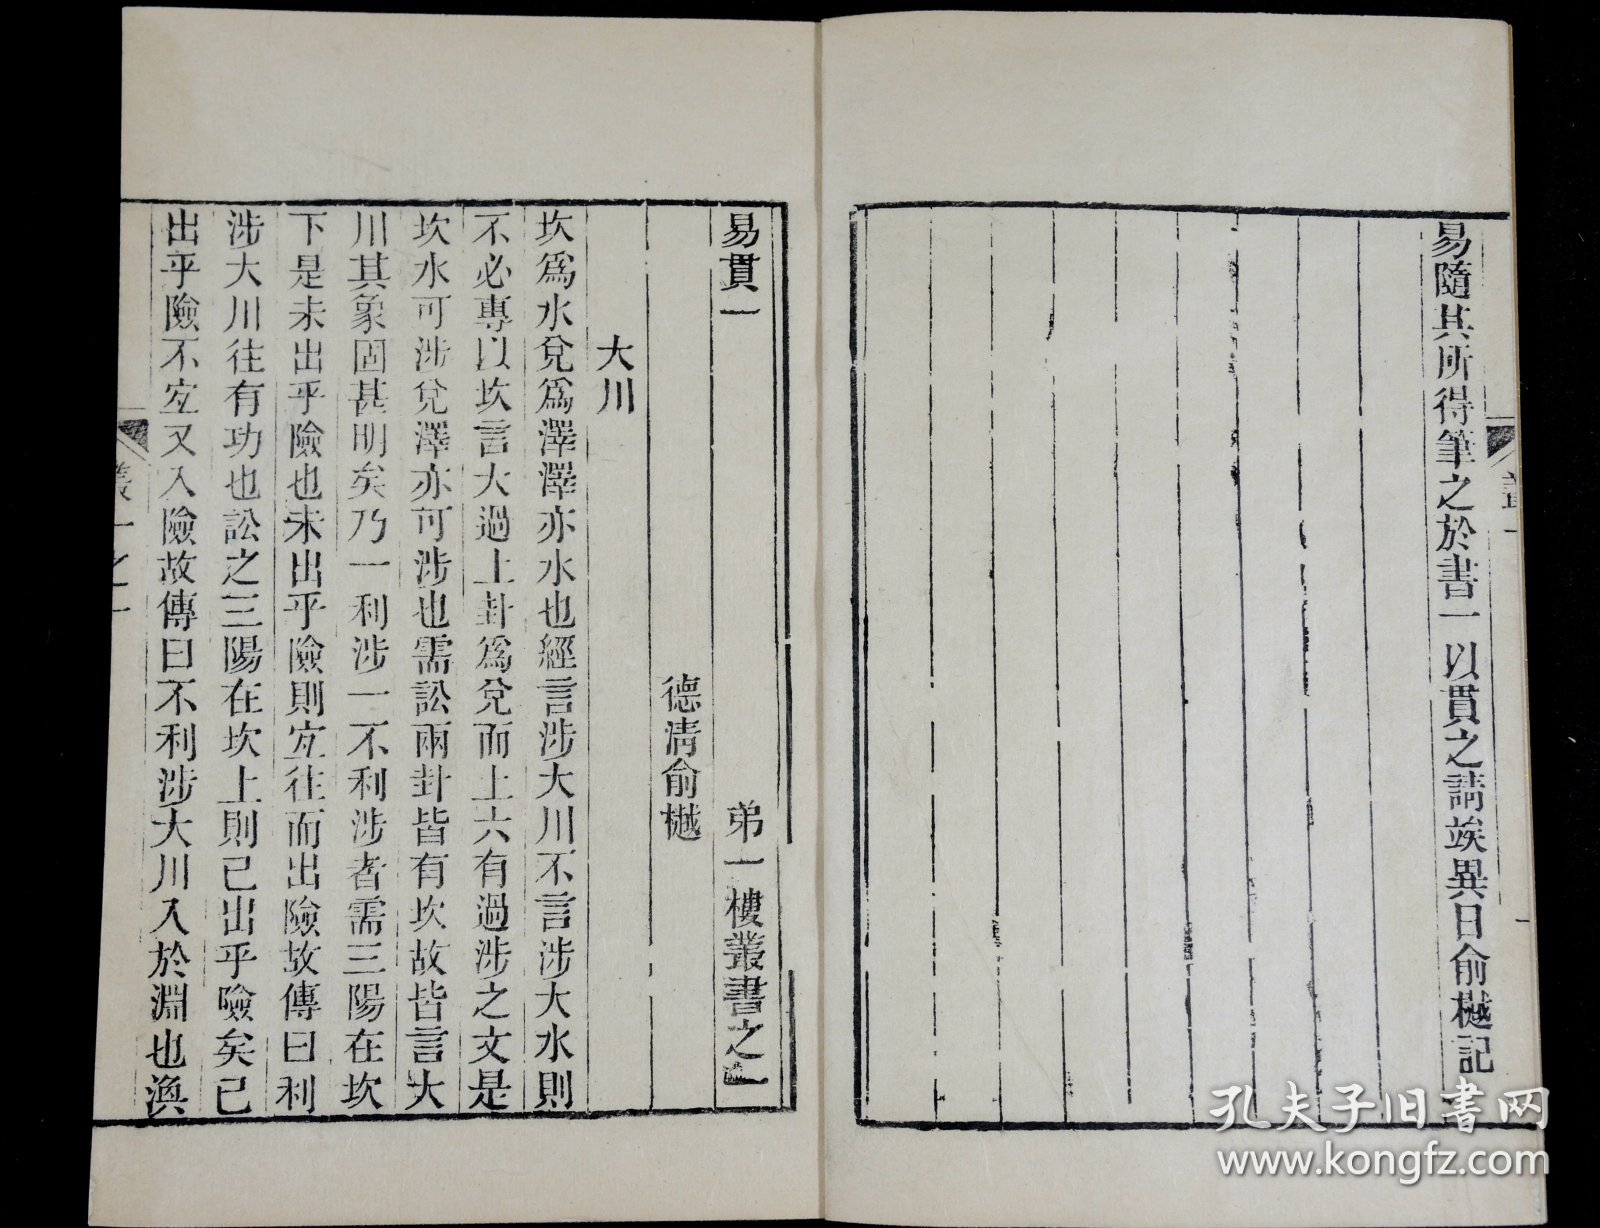 易隨其所得筆之於書一以貫之請竢異日俞樾記
易貫一 弟一樓叢書之一
德清俞樾
大川
坎爲水兌爲澤澤亦水也經言涉大川不言涉大水則
不必專以坎言大過上卦爲兌而上六有過涉之文是
坎水可涉兌澤亦可涉也需訟兩卦皆有坎故皆言大
川其象固甚明矣乃一利涉一不利涉者需三陽在坎
下是未出乎險也未出乎險則宐往而出險故傳曰利
涉大川往有功也訟之三陽在坎上則已出乎險矣已
出乎險不宐又入險故傳曰不利涉大川入於淵也渙
叢一之一
孔夫子旧書网
www.kongfz.com